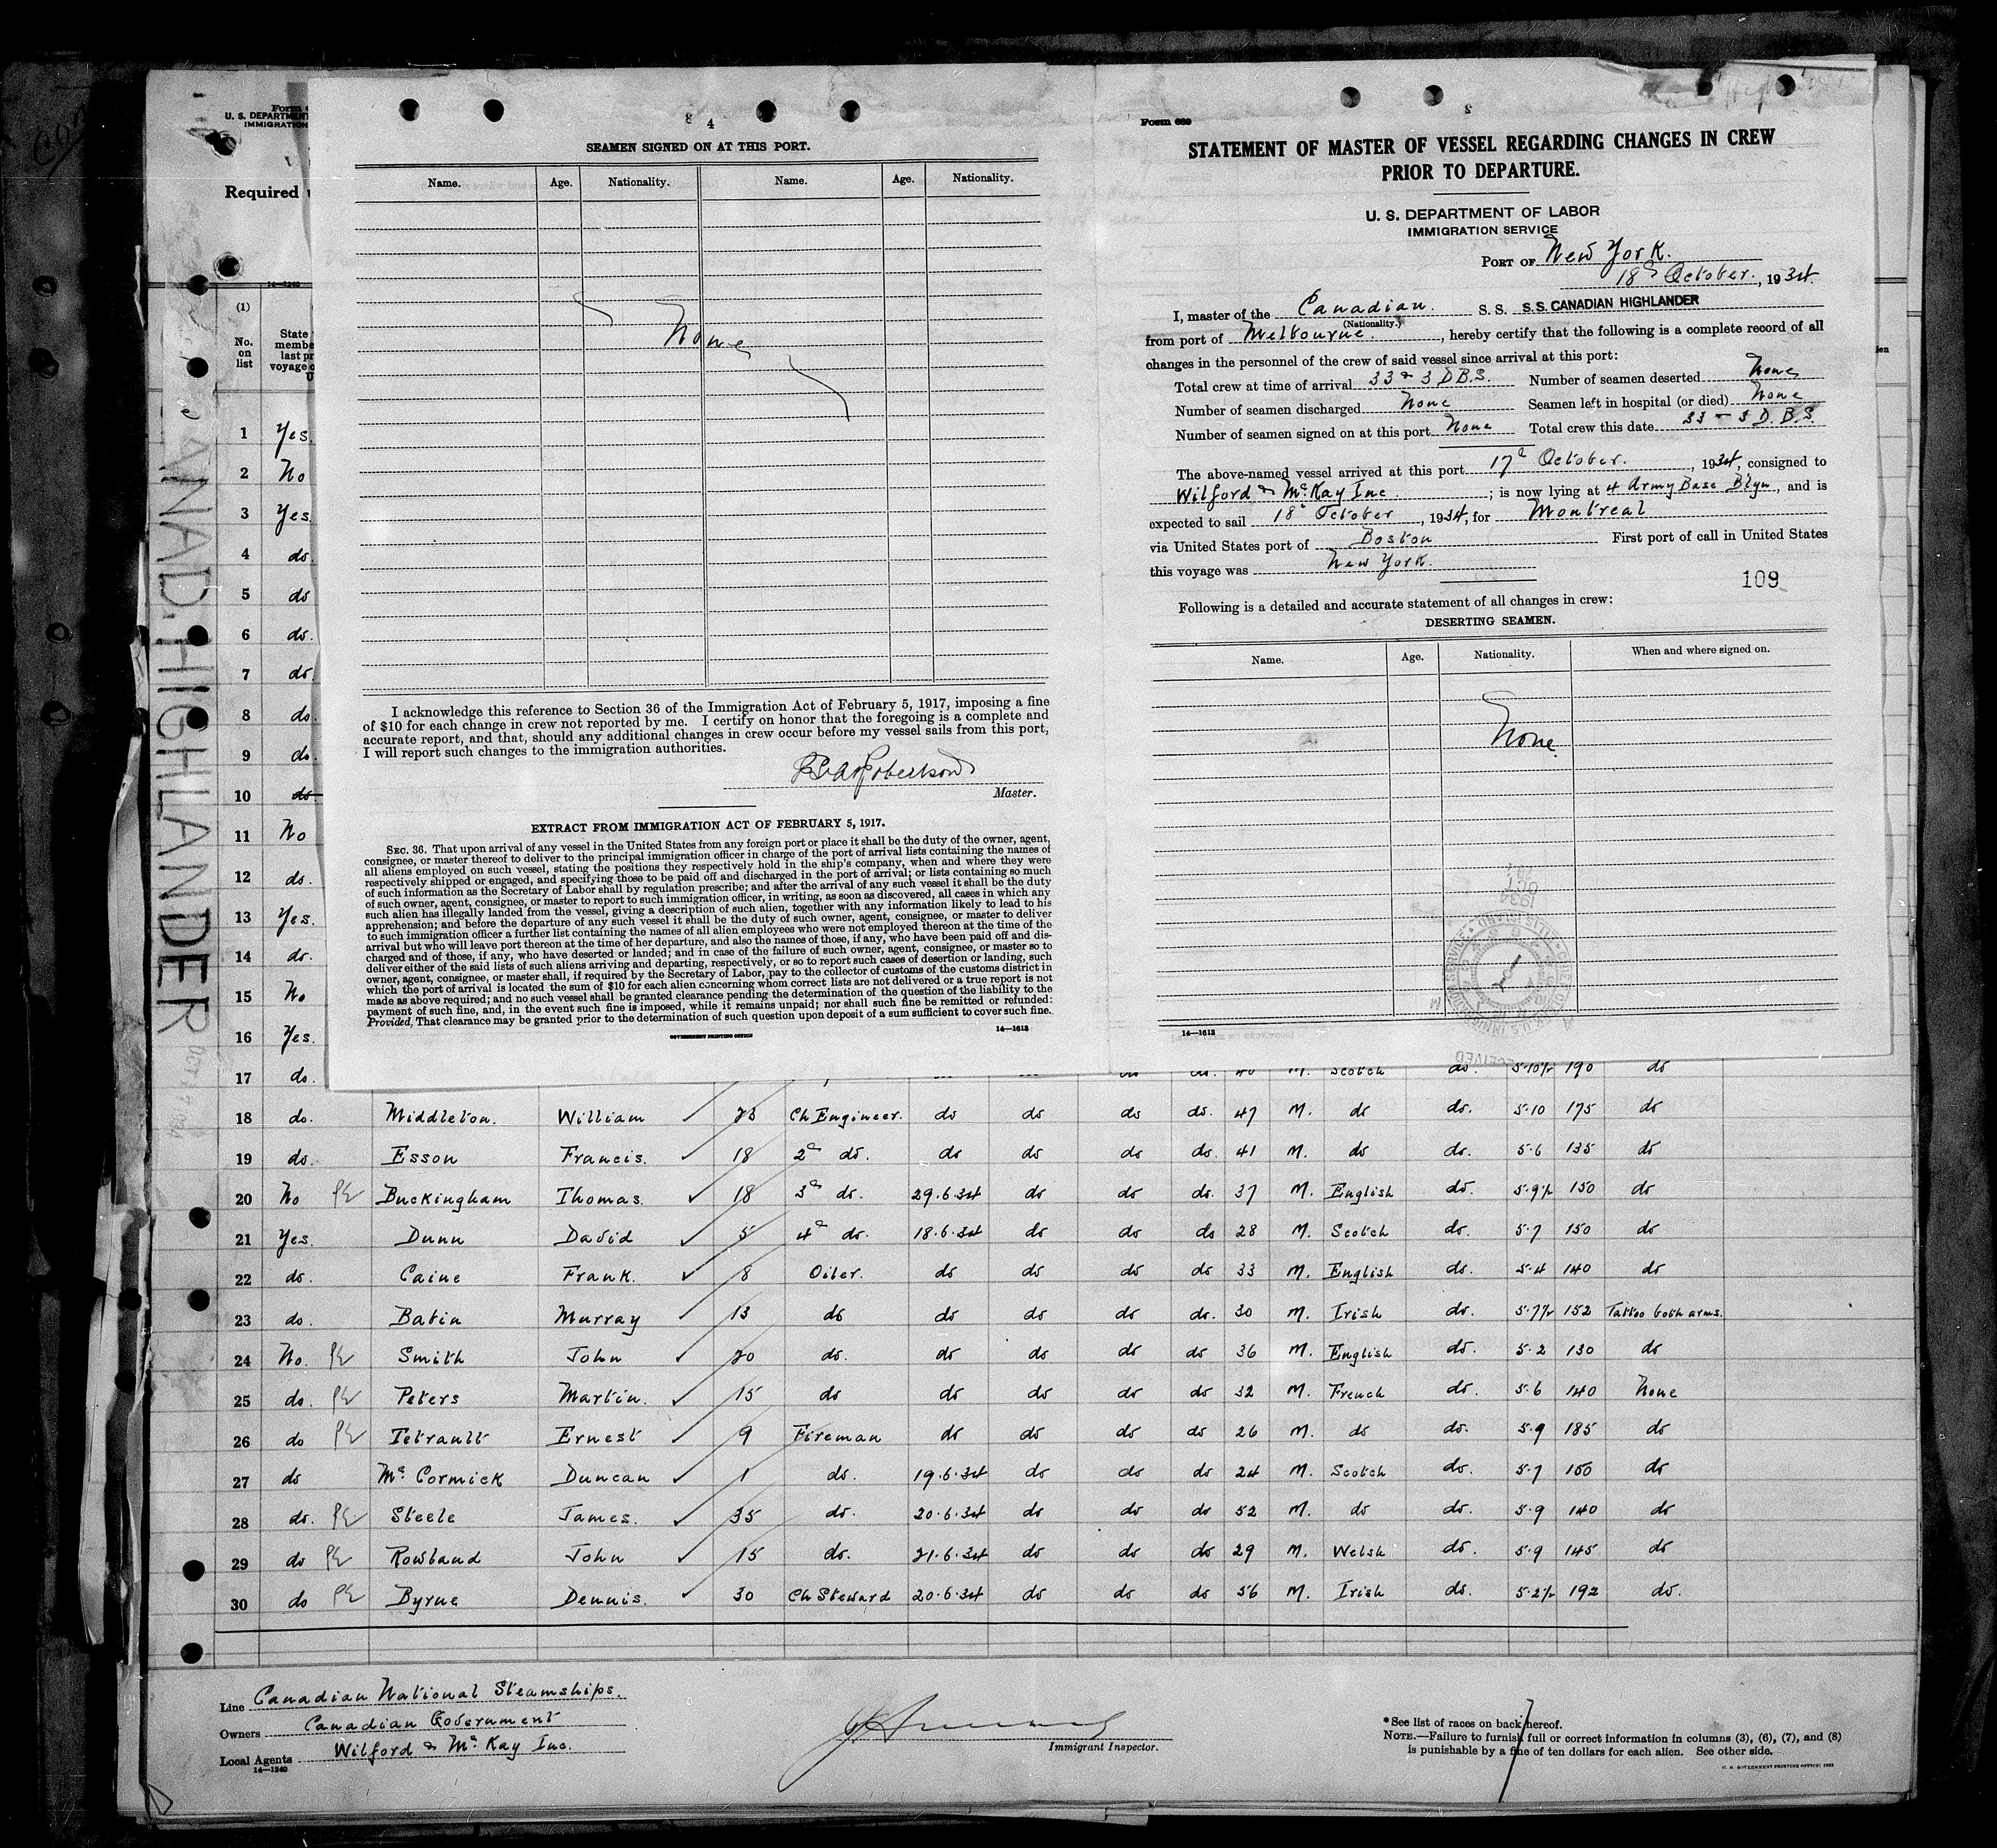 Form
U. S. DEPARTMENT
IMMIGRATION
Required
14—1240
(1)
No.
on
list
State
membe
last pr
voyage o
U
1 Yes.
2 No
3 Yes.
4 do.
5 do
6 do.
7 do.
8 do.
9 do.
10 do.
11 No
12 do.
13 Yes.
14 do.
15 No
16 Yes.
CANAD. HIGHLANDER
4
SEAMEN SIGNED ON AT THIS PORT.
Name. Age. Nationality. Name. Age. Nationality.
None
I acknowledge this reference to Section 36 of the Immigration Act of February 5, 1917, imposing a fine
of $10 for each change in crew not reported by me. I certify on honor that the foregoing is a complete and
accurate report, and that, should any additional changes in crew occur before my vessel sails from this port,
I will report such changes to the immigration authorities.
Robertson
Master.
EXTRACT FROM IMMIGRATION ACT OF FEBRUARY 5, 1917.
SEC. 36. That upon arrival of any vessel in the United States from any foreign port or place it shall be the duty of the owner, agent,
consignee, or master thereof to deliver to the principal immigration officer in charge of the port of arrival lists containing the names of
all aliens employed on such vessel, stating the positions they respectively hold in the ship's company, when and where they were
respectively shipped or engaged, and specifying those to be paid off and discharged in the port of arrival; or lists containing so much
of such information as the Secretary of Labor shall by regulation prescribe; and after the arrival of any such vessel it shall be the duty
of such owner, agent, consignee, or master to report to such immigration officer, in writing, as soon as discovered, all cases in which any
such alien has illegally landed from the vessel, giving a description of such alien, together with any information likely to lead to his
apprehension; and before the departure of any such vessel it shall be the duty of such owner, agent, consignee, or master to deliver
to such immigration officer a further list containing the names of all alien employees who were not employed thereon at the time of the
arrival but who will leave port thereon at the time of her departure, and also the names of those, if any, who have been paid off and dis-
charged and of those, if any, who have deserted or landed; and in case of the failure of such owner, agent, consignee, or master so to
deliver either of the said lists of such aliens arriving and departing, respectively, or so to report such cases of desertion or landing, such
owner, agent, consignee, or master shall, if required by the Secretary of Labor, pay to the collector of customs of the customs district in
which the port of arrival is located the sum of $10 for each alien concerning whom correct lists are not delivered or a true report is not
made as above required; and no such vessel shall be granted clearance pending the determination of the question of the liability to the
payment of such fine, and, in the event such fine is imposed, while it remains unpaid; nor shall such fine be remitted or refunded:
Provided, That clearance may be granted prior to the determination of such question upon deposit of a sum sufficient to cover such fine.
GOVERNMENT PRINTING OFFICE 14—1613
Form 689
STATEMENT OF MASTER OF VESSEL REGARDING CHANGES IN CREW
PRIOR TO DEPARTURE.
U. S. DEPARTMENT OF LABOR
IMMIGRATION SERVICE
PORT OF New York.
18th October., 1934.
I, master of the Canadian. S. S. S.S. CANADIAN HIGHLANDER
(Nationality.)
from port of Melbourne., hereby certify that the following is a complete record of all
changes in the personnel of the crew of said vessel since arrival at this port:
Total crew at time of arrival 33 & 3 DBS. Number of seamen deserted None
Number of seamen discharged None Seamen left in hospital (or died) None
Number of seamen signed on at this port None Total crew this date 33 - 3 D.B.S.
The above-named vessel arrived at this port 17th October., 1934, consigned to
Wilford & McKay Inc.; is now lying at 4 Army Base Blyn, and is
expected to sail 18th October, 1934, for Montreal
via United States port of Boston First port of call in United States
this voyage was New York.
109
Following is a detailed and accurate statement of all changes in crew:
DESERTING SEAMEN.
Name. Age. Nationality. When and where signed on.
None
OCT
1934
14—1613
RECEIVED
17 do. do. 40 M. Scotch do. 5·10½ 190 do
18 do. Middleton. William 25 Ch Engineer. do do do do. 47 M. do do. 5·10 175 do
19 do. Esson Francis. 18 2d do. do do do do. 41 M. do do. 5·6 135 do
20 No Buckingham Thomas. 18 3d do. 29.6.34 do do do. 37 M. English do. 5·9½ 150 do
21 Yes. Dunn David 5 4th do. 18.6.34 do do do 28 M. Scotch do. 5·7 150 do
22 do. Caine Frank. 8 Oiler. do do do do 33 M. English do. 5·4 140 do
23 do. Batin Murray 13 do do do do do. 30 M. Irish do. 5·7½ 152 Tattoo both arms.
24 No. Smith John 20 do. do do do do 36 M. English do. 5·2 130 do
25 do. Peters Martin. 15 do do do do do 32 M. French do. 5·6 140 None
26 do Tetrault Ernest 9 Fireman do do do do 26 M. do do. 5·9 185 do
27 do McCormick Duncan 1 do. 19.6.34 do do do 24 M. Scotch do. 5·7 150 do
28 do. Steele James. 35 do. 20.6.34 do do do 52 M. do do. 5·9 140 do
29 do Rowland John 15 do. 21.6.34 do do do 29 M. Welsh do. 5·9 145 do
30 do Byrne Dennis. 30 Ch Steward 20.6.34 do do do 56 M. Irish do. 5·2½ 192 do.
Line Canadian National Steamships.
Owners Canadian Government
Local Agents Wilford & McKay Inc.
14—1240
Immigrant Inspector.
*See list of races on back hereof.
NOTE.—Failure to furnish full or correct information in columns (3), (6), (7), and (8)
is punishable by a fine of ten dollars for each alien. See other side.
U. S. GOVERNMENT PRINTING OFFICE: 1932